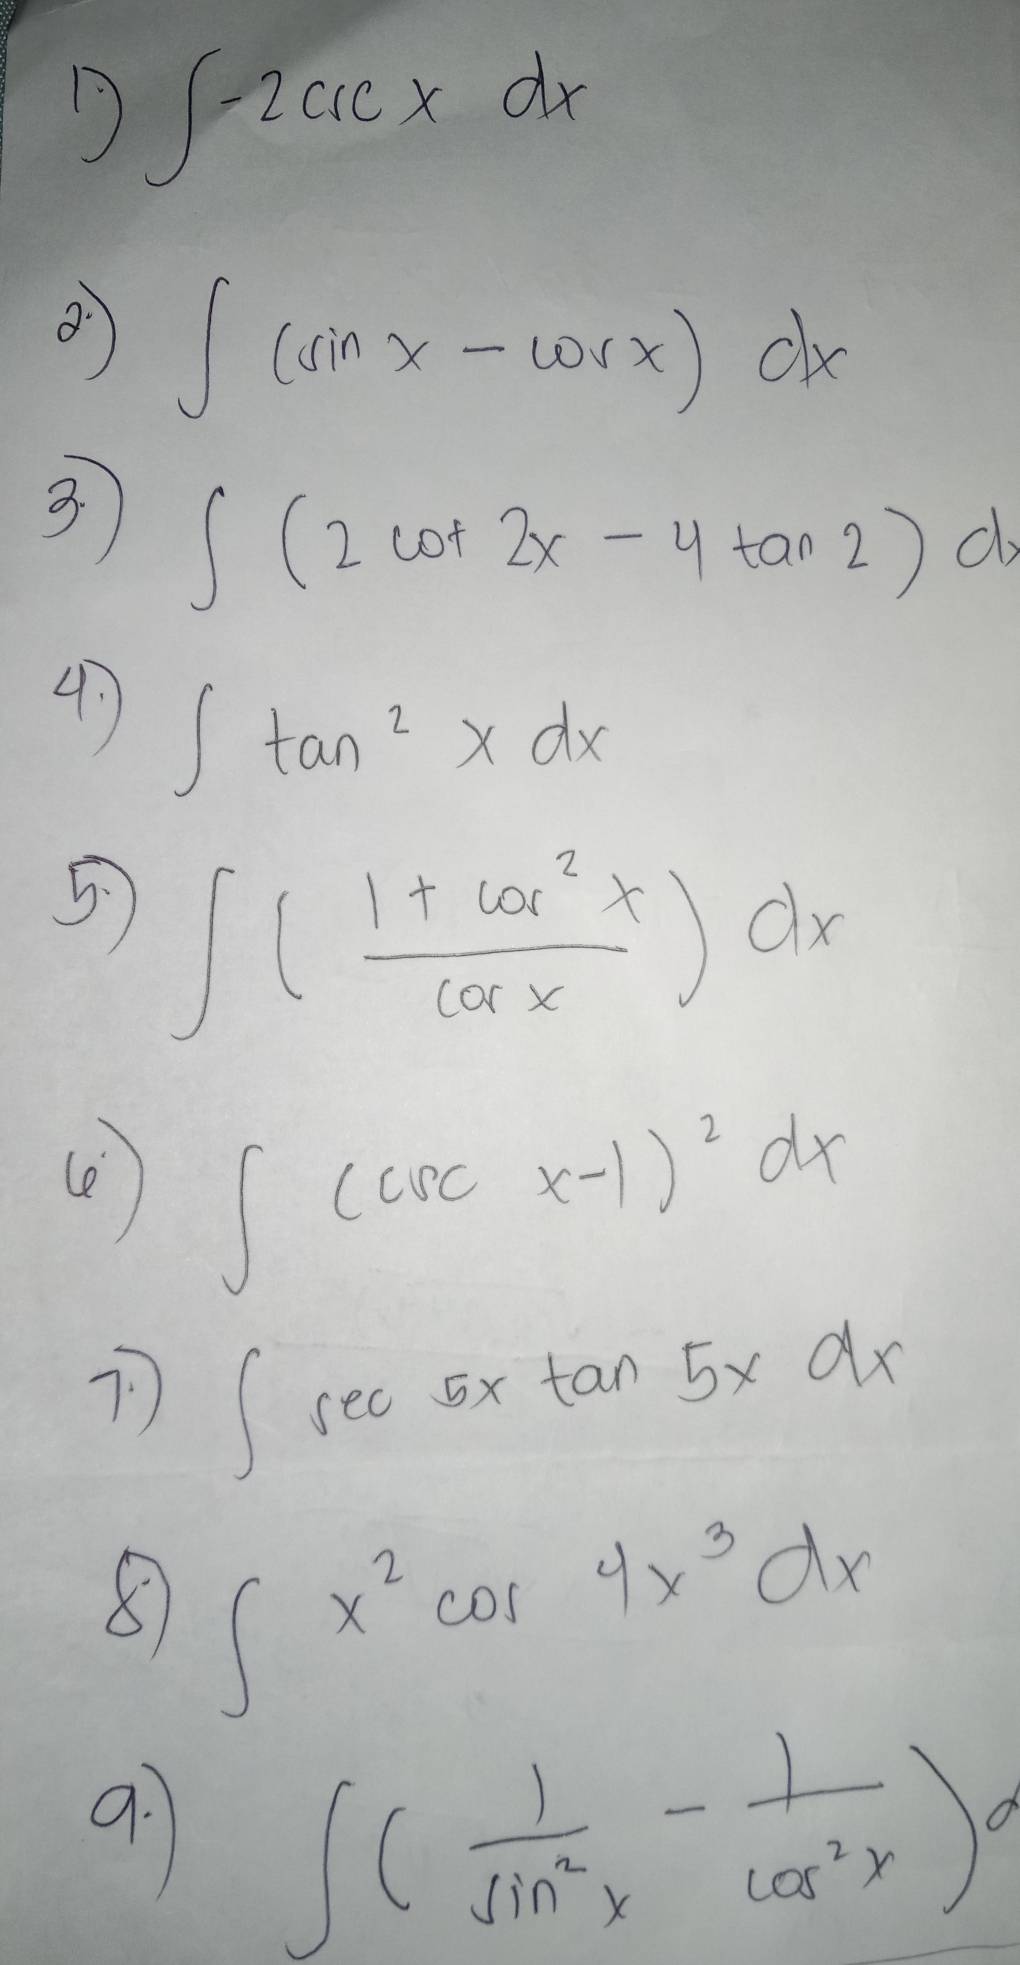 1.) ∫ -2 csc x dx
2.) ∫ (sin x - cos x) dx
3.) ∫ (2 cot 2x - 4 tan 2) dx
4.) ∫ tan² x dx
5.) ∫ ( (1 + cos² x) / (cos x) ) dx
6.) ∫ (csc x-1)² dx
7.) ∫ sec 5x tan 5x dx
8.) ∫ x² cos 4x³ dx
9.) ∫ ( 1/sin² x - 1/cos² x ) d